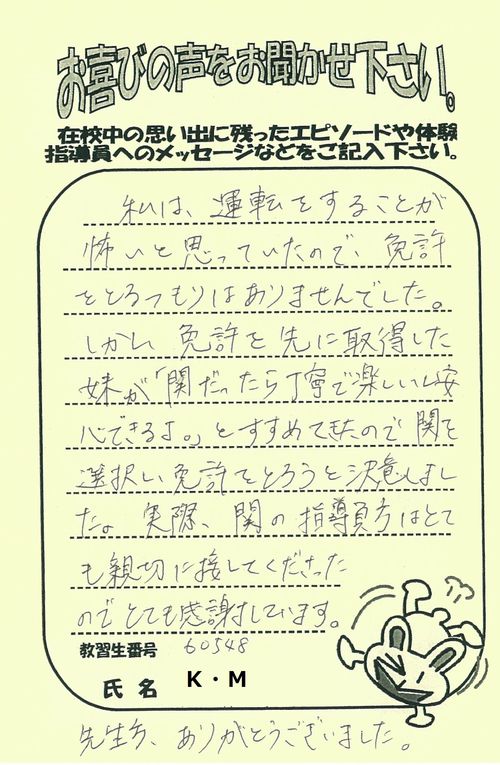 お喜びの声をお聞かせ下さい。
在校中の思い出に残ったエピソードや体験
指導員へのメッセージなどをご記入下さい。
私は、運転をすることが
怖いと思っていたので、免許
をとるつもりはありませんでした。
しかし、免許を先に取得した
妹が「関だったら丁寧で楽しいし安
心できるよ。」とすすめてきたので関を
選択し、免許をとろうと決意しまし
た。実際、関の指導員方はとて
も親切に接してくださった
のでとても感謝しています。
教習生番号 60548
氏名 K・M
先生方、ありがとうございました。